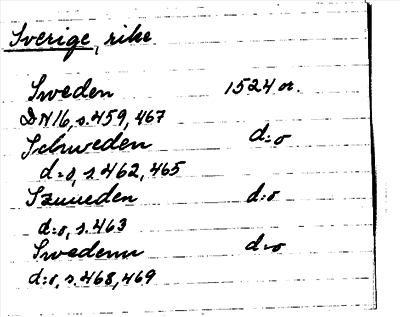 Sverige, rike
Sweden 1524 or.
DN16, s.459, 467
Schweden d:o
d:o, s.462, 465
Szwueden d:o
d:o, s.463
Swedenn d:o
d:o, s.468, 469